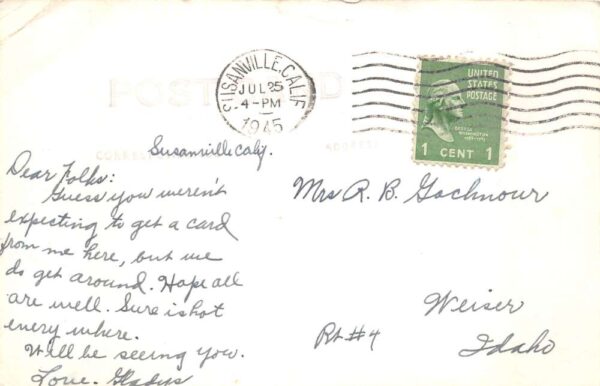 POST CARD
SUSANVILLE, CALIF.
JUL 25
4-PM
1945
UNITED
STATES
POSTAGE
GEORGE
WASHINGTON
1 CENT 1
CORRES
ADDRESS
Susanville Calif.
Dear Folks:
Guess you weren't
expecting to get a card
from me here, but we
do get around. Hope all
are well. Sure is hot
every where.
Will be seeing you.
Love. Gladys
Mrs R. B. Gochnour
Weiser
Rt #4
Idaho